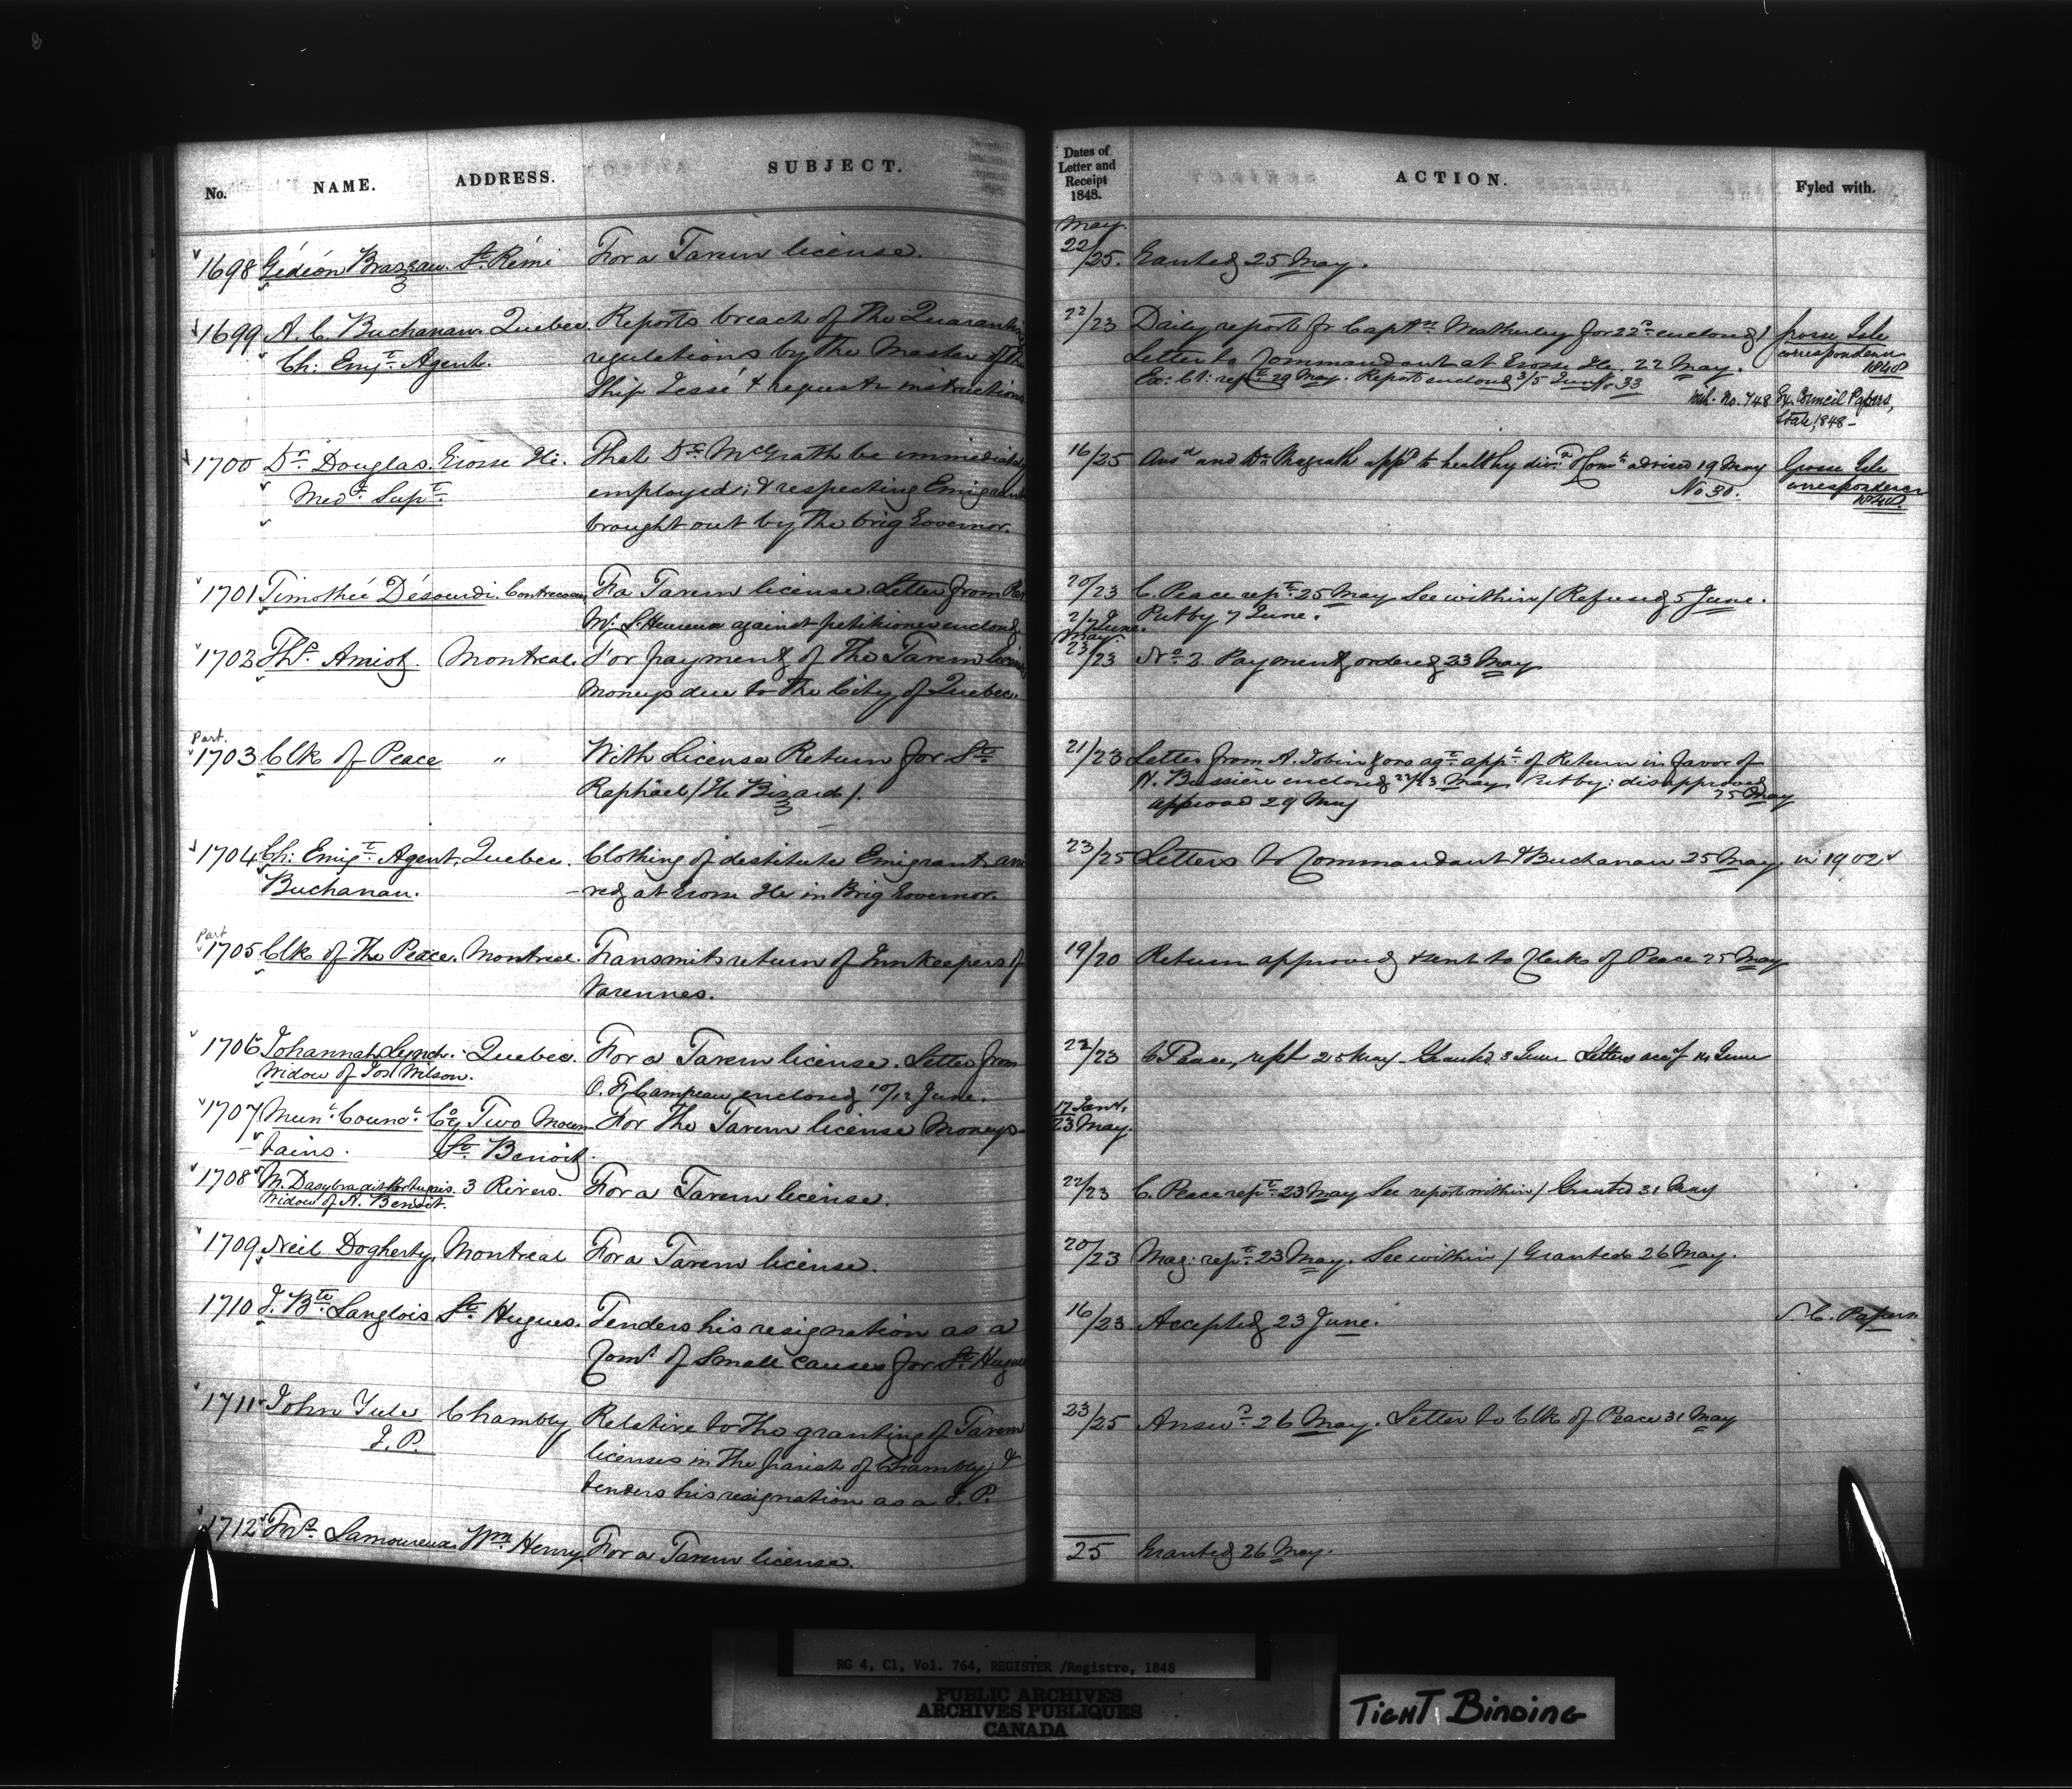 No. NAME. ADDRESS. SUBJECT. Dates of Letter and Receipt 1848. ACTION. Fyled with.
May
1698 Gédéon Brazeau St. Rémi For a Tavern license. 22/25. Granted 25 May.
1699 A. C. Buchanan Quebec Reports breach of the Quarantine 22/23 Daily report fr Captn Weatherley for 22d enclosed / Grosse Isle
Ch: Emigt Agent. regulations by the Master of the Letter to Commandant at Grosse Ile. 22 May. correspondence 1848
Ship Jessé & requests instructions Ex: Cl: rept 29 May. Report enclosed 3/5 June No. 33
No. 748 Ex. Council Papers,
State, 1848 –
1700 Dr. Douglas Grosse Ile. That Dr. McGrath be immediately 16/25 Ansd and Dr. Magrath appd to healthy divn Comt advised 19 May Grosse Isle
Medl Supt employed; & respecting Emigrants No 30. correspondence 1848
brought out by the brig Governor.
1701 Timothé Désourdi Contrecoeur Fr a Tavern license Letter from Rev 20/23 C. Peace rept 25 May See within / Refused 5 June.
Mr. L'Heureux against petitioner enclosed 2/7 June. Put by 7 June.
May.
1702 Ths. Amiot Montreal. For payment of the Tavern license 23/23 No 2 Payment ordered 23 May
moneys due to the City of Quebec.
Part.
1703 Clk of Peace " With License Return for St. 21/23 Letter from A. Tobin & ors agt appt of Return in favor of
Raphäel / Ile Bizard /. H. Bussière enclosed 22/23 May Put by: disapproved 25 May
approved 29 May
1704 Ch: Emigt Agent, Quebec. Clothing of destitute Emigrants arri 23/25 Letters to Commandant & Buchanan 25 May in 1902
Buchanan. -red at Grosse Ile in Brig Governor.
Part
1705 Clk of the Peace. Montreal. Transmits return of Innkeepers of 19/20 Return approved & sent to Clerk of Peace 25 May
Varennes.
1706 Johannah Lynch. Quebec. For a Tavern license. Letter from 22/23 C Peace, rept 25 May Granted 3 June
Widow of Jos Wilson. O. F. Campeau enclosed 10/12 June.
1707 Munl Councl Cy Two Moun For the Tavern license Moneys 17 Jany,
-tains. St. Benoit. 23 May.
1708 M. Dasylva dit Portugais. 3 Rivers. For a Tavern license. 22/23 C. Peace rept 23 May See report within / Granted 31 May
Widow of A. Benoit.
1709 Neil Dogherty, Montreal For a Tavern license. 20/23 Mag: rept 23 May. See within / Granted 26 May.
1710 J. Bte Langlois St. Hugues. Tenders his resignation as a 16/23 Accepted 23 June. S. C. Papers
Comr of Small causes for St. Hugues
1711 John Yule Chambly Relative to the granting of Tavern 23/25 Answd 26 May. Letter to Clk of Peace 31 May
J. P. licenses in the parish of Chambly, &
tenders his resignation as a J. P.
1712 Frs. Lamoureux Wm Henry For a Tavern license. 25 Granted 26 May.
RG 4, C1, Vol. 764, REGISTER /Registre, 1848
PUBLIC ARCHIVES
ARCHIVES PUBLIQUES
CANADA
TIGHT BINDING